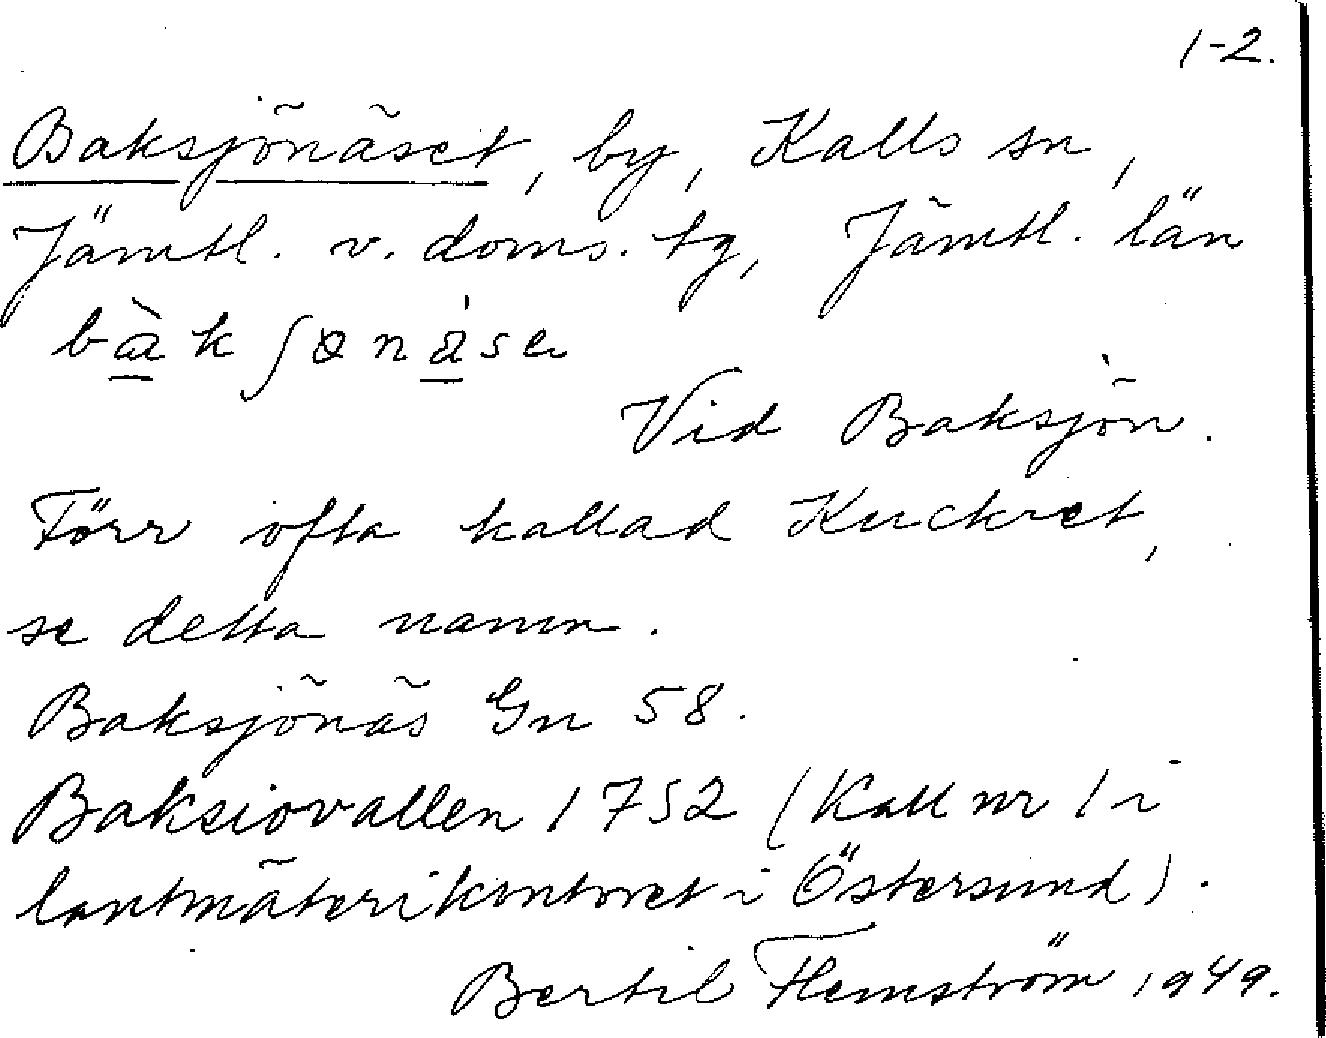 1-2.
Baksjönäset, by, Kalls sn,
Jämtl. v. doms. tg, Jämtl. län
bàkʃɵnáse
Vid Baksjön.
Förr ofta kallad Kuckret,
se detta namn.
Baksjönäs Gn 58.
Baksiovallen 1752 (Kall nr 1 i
lantmäterikontoret i Östersund).
Bertil Flemström 1949.